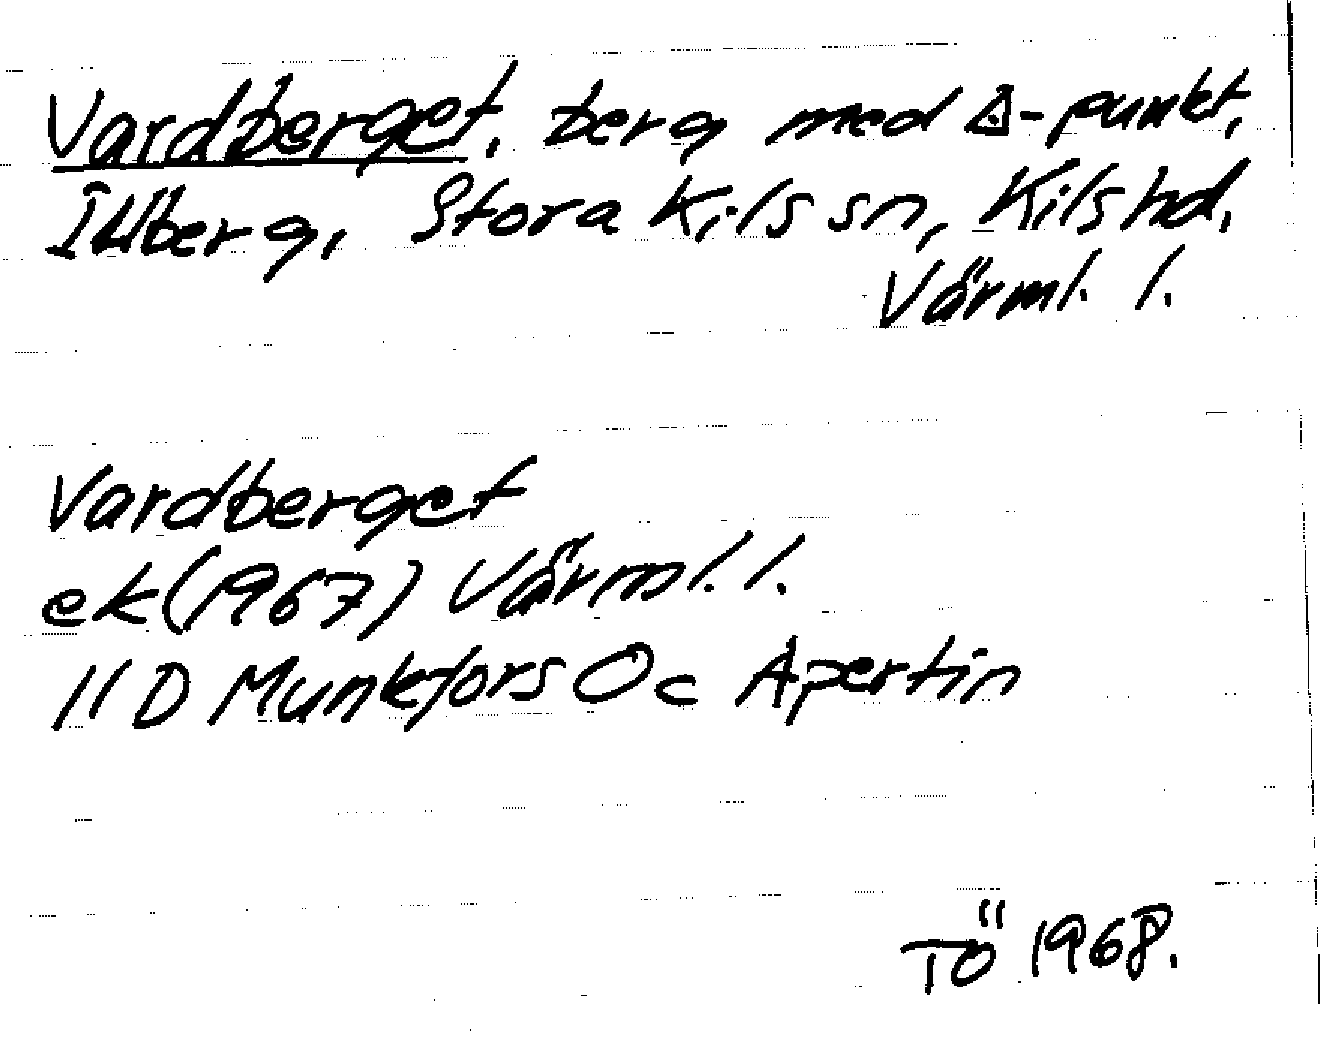 Vardberget, berg med △-punkt,
Illberg, Stora Kils sn, Kils hd,
Värml. l.
Vardberget
ek (1967) Värml. l.
11 D Munkfors Ö c Apertin
TÖ 1968.